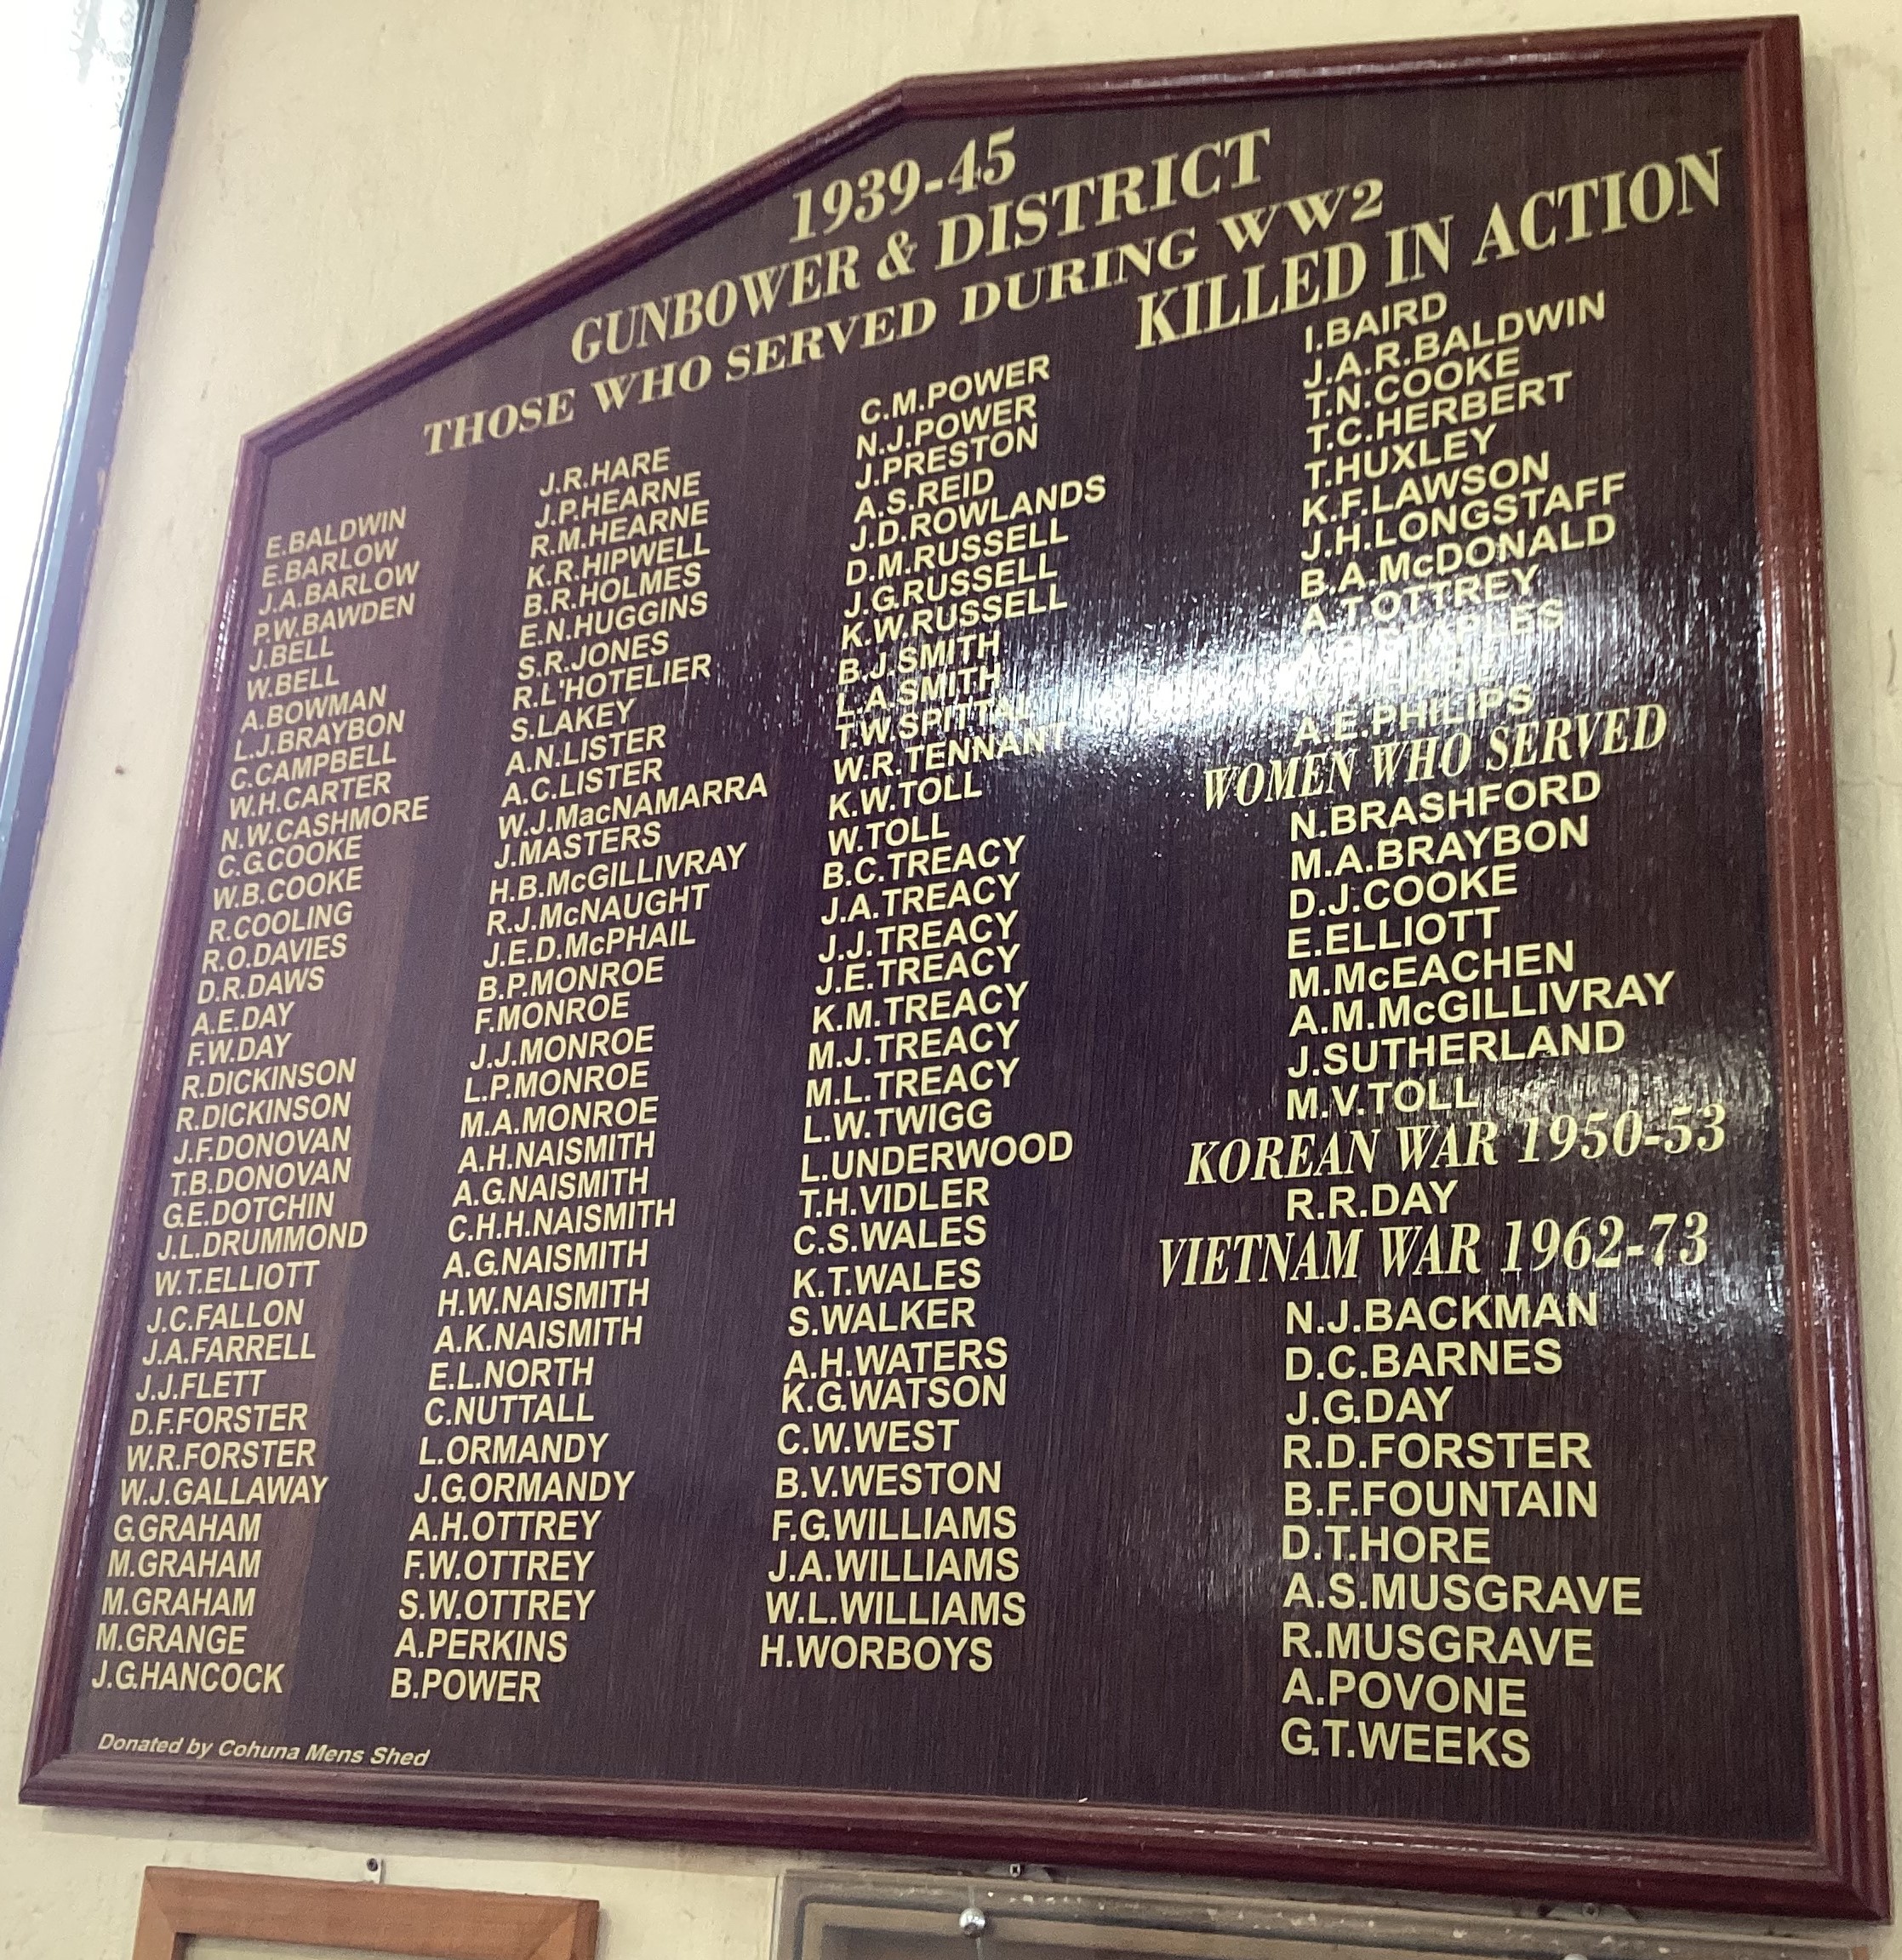 1939-45
GUNBOWER & DISTRICT
THOSE WHO SERVED DURING WW2
E.BALDWIN
E.BARLOW
J.A.BARLOW
P.W.BAWDEN
J.BELL
W.BELL
A.BOWMAN
L.J.BRAYBON
C.CAMPBELL
W.H.CARTER
N.W.CASHMORE
C.G.COOKE
W.B.COOKE
R.COOLING
R.O.DAVIES
D.R.DAWS
A.E.DAY
F.W.DAY
R.DICKINSON
R.DICKINSON
J.F.DONOVAN
T.B.DONOVAN
G.E.DOTCHIN
J.L.DRUMMOND
W.T.ELLIOTT
J.C.FALLON
J.A.FARRELL
J.J.FLETT
D.F.FORSTER
W.R.FORSTER
W.J.GALLAWAY
G.GRAHAM
M.GRAHAM
M.GRAHAM
M.GRANGE
J.G.HANCOCK
J.R.HARE
J.P.HEARNE
R.M.HEARNE
K.R.HIPWELL
B.R.HOLMES
E.N.HUGGINS
S.R.JONES
R.L'HOTELIER
S.LAKEY
A.N.LISTER
A.C.LISTER
W.J.MacNAMARRA
J.MASTERS
H.B.McGILLIVRAY
R.J.McNAUGHT
J.E.D.McPHAIL
B.P.MONROE
F.MONROE
J.J.MONROE
L.P.MONROE
M.A.MONROE
A.H.NAISMITH
A.G.NAISMITH
C.H.H.NAISMITH
A.G.NAISMITH
H.W.NAISMITH
A.K.NAISMITH
E.L.NORTH
C.NUTTALL
L.ORMANDY
J.G.ORMANDY
A.H.OTTREY
F.W.OTTREY
S.W.OTTREY
A.PERKINS
B.POWER
C.M.POWER
N.J.POWER
J.PRESTON
A.S.REID
J.D.ROWLANDS
D.M.RUSSELL
J.G.RUSSELL
K.W.RUSSELL
B.J.SMITH
L.A.SMITH
T.W.SPITTAL
W.R.TENNANT
K.W.TOLL
W.TOLL
B.C.TREACY
J.A.TREACY
J.J.TREACY
J.E.TREACY
K.M.TREACY
M.J.TREACY
M.L.TREACY
L.W.TWIGG
L.UNDERWOOD
T.H.VIDLER
C.S.WALES
K.T.WALES
S.WALKER
A.H.WATERS
K.G.WATSON
C.W.WEST
B.V.WESTON
F.G.WILLIAMS
J.A.WILLIAMS
W.L.WILLIAMS
H.WORBOYS
KILLED IN ACTION
I.BAIRD
J.A.R.BALDWIN
T.N.COOKE
T.C.HERBERT
T.HUXLEY
K.F.LAWSON
J.H.LONGSTAFF
B.A.McDONALD
A.T.OTTREY
A.E.PHILIPS
WOMEN WHO SERVED
N.BRASHFORD
M.A.BRAYBON
D.J.COOKE
E.ELLIOTT
M.McEACHEN
A.M.McGILLIVRAY
J.SUTHERLAND
M.V.TOLL
KOREAN WAR 1950-53
R.R.DAY
VIETNAM WAR 1962-73
N.J.BACKMAN
D.C.BARNES
J.G.DAY
R.D.FORSTER
B.F.FOUNTAIN
D.T.HORE
A.S.MUSGRAVE
R.MUSGRAVE
A.POVONE
G.T.WEEKS
Donated by Cohuna Mens Shed